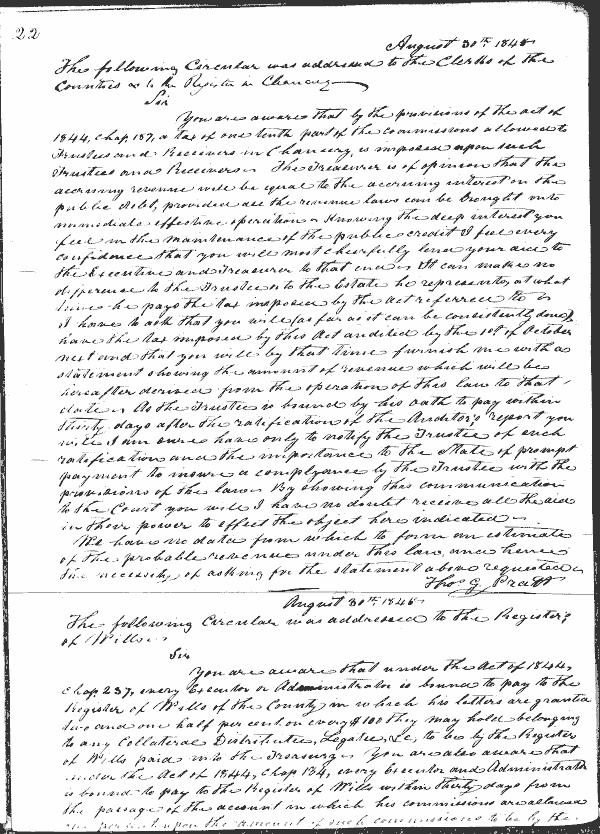 22
August 30th 1845
The following Circular was addressed to the Clerks of the
Counties as to the Register in Chancery
Sir
You are aware that by the provisions of the act of
1844, Chap 187, a tax of one tenth part of the commissions allowed to
Trustees and Receivers in Chancery, is imposed upon such
Trustees and Receivers. The Treasurer is of opinion that the
accruing revenue will be equal to the accruing interest on the
public debt, provided all the revenue laws can be brought into
immediate effective operation. Knowing the deep interest you
feel in the maintenance of the public credit I feel every
confidence that you will most cheerfully lend your aid to
the Executive and Treasurer to that end. It can make no
difference to the Trustee or to the Estate he represents, at what
time he pays the tax imposed by the act referred to
I have to ask that you will (as far as it can be consistently done)
have the tax imposed by this Act audited by the 10th of October
next and that you will by that time furnish me with a
statement showing the amount of revenue which will be
hereafter derived from the operation of this law to that
date. As the Trustee is bound by his oath to pay within
thirty days after the ratification of the Auditor's report you
will I am sure have only to notify the Trustee of such
ratification and the importance to the State of prompt
payment to insure a complyance by the Trustee with the
provisions of the law. By showing this communication
to the Court you will I have no doubt receive all the aid
in their power to effect the object here indicated
We have no data from which to form an estimate
of the probable revenue under this law, and hence
the necessity of asking for the statement above requested
Thos G. Pratt
August 30th 1845
The following Circular was addressed to the Register's
of Wills
Sir
You are aware that under the Act of 1844,
Chap 237, every Executor or Administrator is bound to pay to the
Register of Wills of the County in which his letters are granted
two and one half per cent on every $100 they may hold belonging
to any Collateral Distributee, Legatee, &c, to be by the Register
of Wills paid into the Treasury. You are also aware that
under the Act of 1844, Chap 134, every Executor and Administrator
is bound to pay to the Register of Wills within thirty days from
the passage of the account in which his commissions are allowed
upon the amount of such commissions to be by the